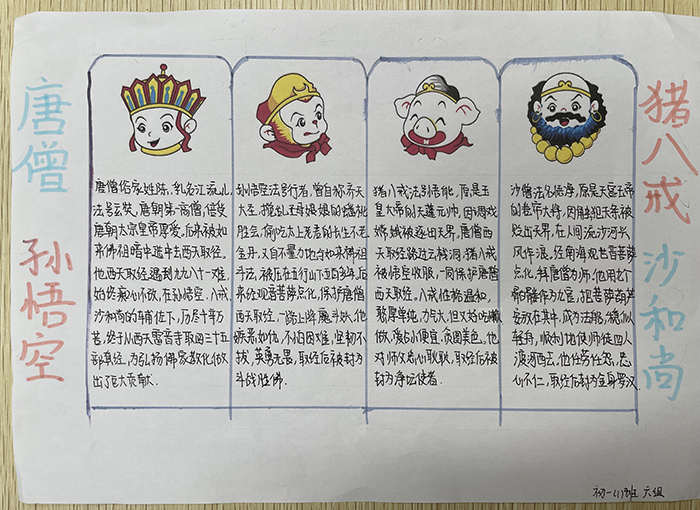 唐僧
孙悟空
唐僧俗家姓陈,乳名江流儿,
法号玄奘,唐朝第一高僧,倍受
唐朝太宗皇帝厚爱,后来被如
来佛祖暗中选中去西天取经。
他西天取经遇到九九八十一难,
始终痴心不改,在孙悟空、八戒
沙和尚的辅佐下,历尽千辛万
苦,终于从西天雷音寺取回三十五
部真经,为弘扬佛家教化做
出了巨大贡献.
孙悟空法号行者,曾自称齐天
大圣,搅乱王母娘娘的蟠桃
胜会,偷吃太上老君的长生不老
金丹,又自不量力地与如来佛祖
斗法,被压在五行山下五百多年。后
来经观音菩萨点化,保护唐僧
西天取经。一路上降魔斗妖,他
嫉恶如仇,不怕困难,坚韧不
拔,英勇无畏,取经后被封为
斗战胜佛.
猪八戒法号悟能,原是玉
皇大帝的天蓬元帅,因调戏
嫦娥被逐出天界,唐僧西
天取经路过云栈洞,猪八戒
被悟空收服,一同保护唐僧
西天取经。八戒性格温和,
憨厚单纯,力气大,但又好吃懒
做,爱占小便宜,贪图美色。他
对师父忠心耿耿,取经后被
封为净坛使者.
沙僧法名悟净,原是天宫玉帝
的卷帘大将,因触犯天条被
贬出天界,在人间流沙河兴
风作浪。经南海观世音菩萨
点化,拜唐僧为师,他用七个
骷髅作为九宫,把菩萨葫芦
安放在其中,成为法船,稳似
轻舟,顺利地使师徒四人
渡河西去。他任劳任怨,忠
心不仁,取经后封为金身罗汉
猪八戒
沙和尚
初一(1)班 六组